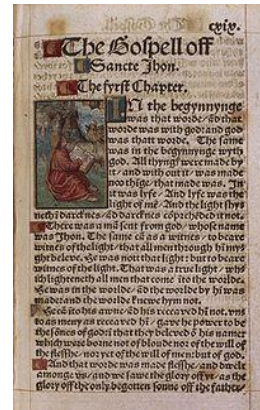 cxix.
The Gospell off
Sancte Jhon.
The fyrst Chapter.
IN the begynnynge
was that worde / ād that
worde was with god: and god
was thatt worde. The same
was in the begynnynge wyth
god. All thyngs were made by
it / and with out it / was made
noo thīge / that made was. In
it was lyfe / And lyfe was the
light of mē / And the light shy
neth i darcknes / ād darcknes cōprehēded it not.
There was a mā sent from god / whose name
was Jhon. The same cā as a witnes / to beare
witnes of the light / that all men through hī myght
beleve. He was nott that light: but to beare
witnes of the light. That was a true light / wh
ich lighteneth all men that come īto the worlde.
He was in the worlde / ād the worlde by hī was
made: and the worlde knewe hym not.
He cā īto his awne / ād his receaved hī not. vn
to as meny as receaved hī / gave he power to be
the sones of god: ī that they beleved ō his name:
which were borne not of bloude nor of the will of
the flesshe / nor yet of the will of men: but of god.
And that worde was made flesshe / and dwelt
amonge vs / and we sawe the glory off yt / as the
glory off the only begotten sonne off the father /